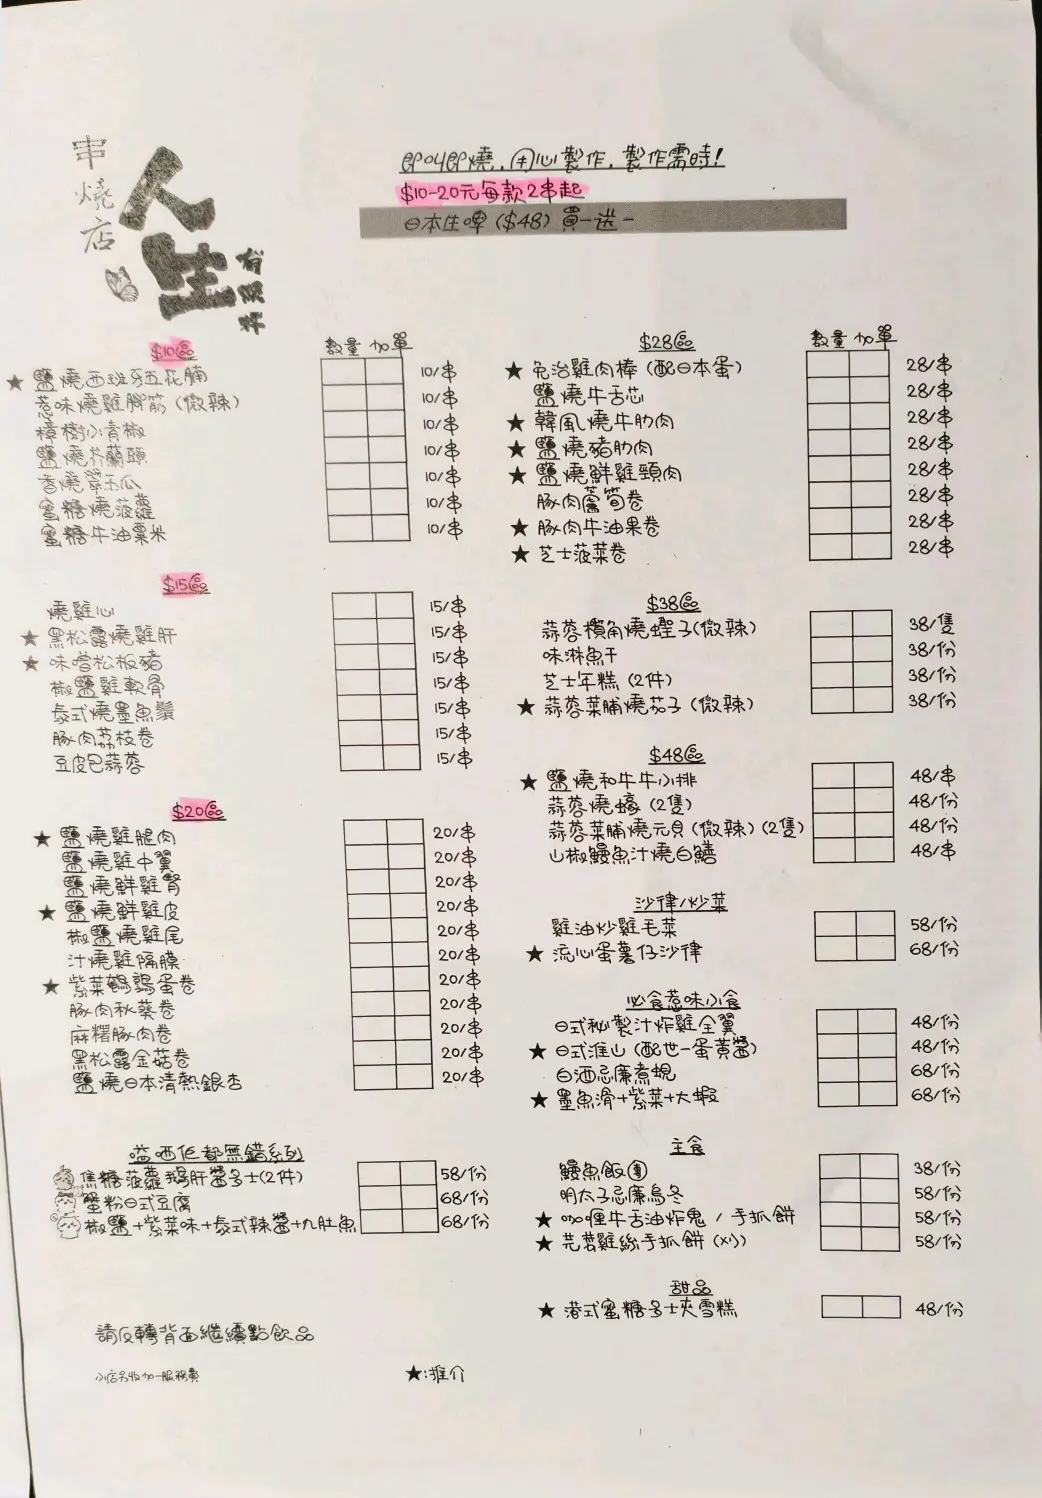 串燒店
人生
有幾串
即叫即燒,用心製作,製作需時!
$10-20元每款2串起
日本生啤 ($48) 買一送一
$10區 數量 加單
★ 鹽燒西班牙五花腩 10/串
惹味燒雞脾筋 (微辣) 10/串
樟樹小青椒 10/串
鹽燒芥蘭頭 10/串
香燒翠玉瓜 10/串
蜜糖燒菠蘿 10/串
蜜糖牛油粟米 10/串
$15區
燒雞心 15/串
★ 黑松露燒雞肝 15/串
★ 味噌松板豬 15/串
椒鹽雞軟骨 15/串
泰式燒墨魚鬚 15/串
豚肉荔枝卷 15/串
豆皮包蒜蓉 15/串
$20區
★ 鹽燒雞腿肉 20/串
鹽燒雞中翼 20/串
鹽燒鮮雞腎 20/串
★ 鹽燒鮮雞皮 20/串
椒鹽燒雞尾 20/串
汁燒雞隔膜 20/串
★ 紫菜鵪鶉蛋卷 20/串
豚肉秋葵卷 20/串
麻糬豚肉卷 20/串
黑松露金菇卷 20/串
鹽燒日本清熱銀杏 20/串
嗌哂佢都無錯系列
焦糖菠蘿鵝肝醬多士(2件) 58/份
蟹粉日式豆腐 68/份
椒鹽+紫菜味+泰式辣醬+九肚魚 68/份
請反轉背面繼續點飲品
小店另收加一服務費
★:推介
$28區 數量 加單
★ 免治雞肉棒 (配日本蛋) 28/串
鹽燒牛舌芯 28/串
★ 韓風燒牛肋肉 28/串
★ 鹽燒豬肋肉 28/串
★ 鹽燒鮮雞頸肉 28/串
豚肉蘆筍卷 28/串
★ 豚肉牛油果卷 28/串
★ 芝士菠菜卷 28/串
$38區
蒜蓉欖角燒蟶子(微辣) 38/隻
味淋魚干 38/份
芝士年糕 (2件) 38/份
★ 蒜蓉菜脯燒茄子 (微辣) 38/份
$48區
★ 鹽燒和牛牛小排 48/串
蒜蓉燒蠔 (2隻) 48/份
蒜蓉菜脯燒元貝 (微辣) (2隻) 48/份
山椒鰻魚汁燒白鱔 48/串
沙律/炒菜
雞油炒雞毛菜 58/份
★ 流心蛋薯仔沙律 68/份
必食惹味小食
日式秘製汁炸雞全翼 48/份
★ 日式淮山 (配世一蛋黃醬) 48/份
白酒忌廉煮蜆 68/份
★ 墨魚滑+紫菜+大蝦 68/份
主食
鰻魚飯團 38/份
明太子忌廉烏冬 58/份
★ 咖喱牛舌油炸鬼 / 手抓餅 58/份
★ 芫荽雞絲手抓餅 (刈) 58/份
甜品
★ 港式蜜糖多士夾雪糕 48/份